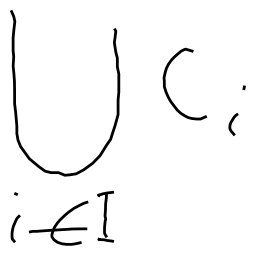 \bigcup_{i \in I} C_i